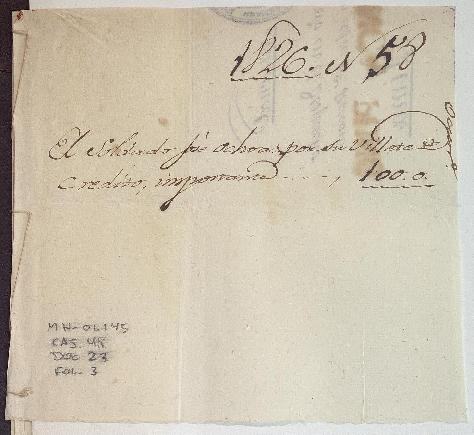 1826. N 58
El Soldado Jé Ochoa, por su Villete de
Credito, importante ..... , 100. o.
MH-OL145
CAJ. 48
DOC 23
FOL. 3